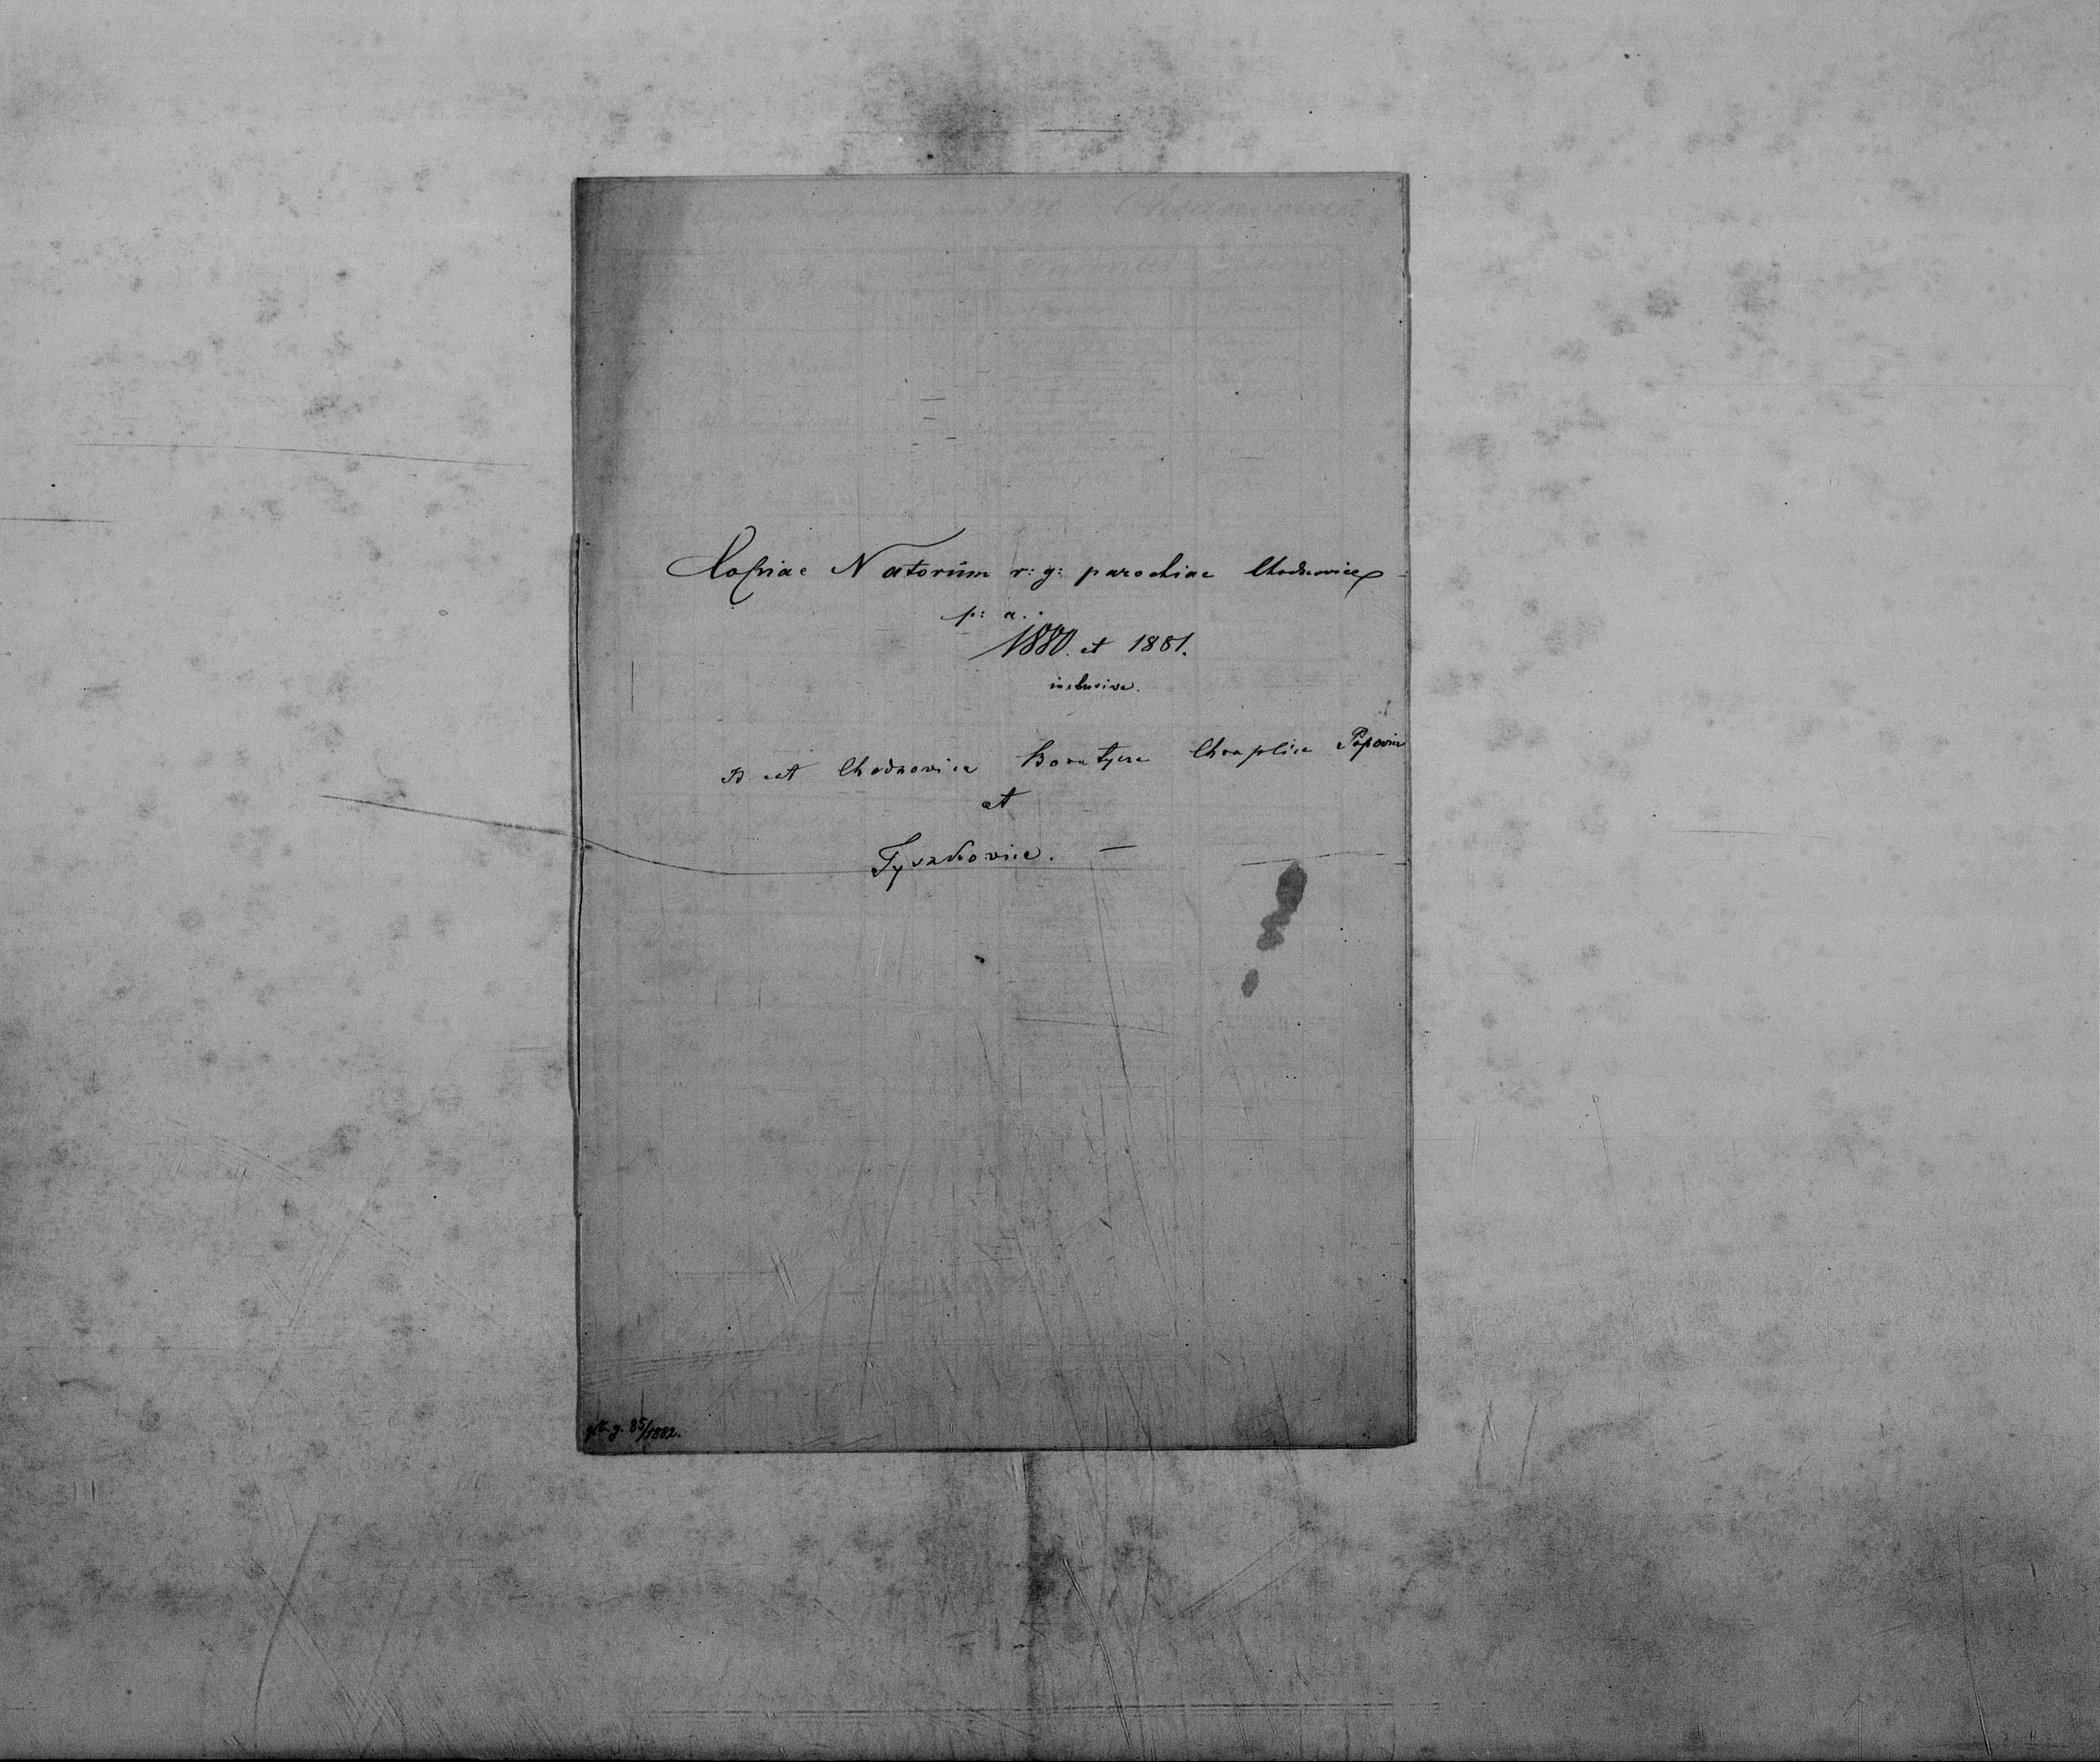 Copiae Natorum r: g: parochiae Chodnovice
p: a:
1880. et 1881.
inclusive.
Chodnovice Boratycze Chraplice Popovice
et
Tyszkovice. —
85/1882.